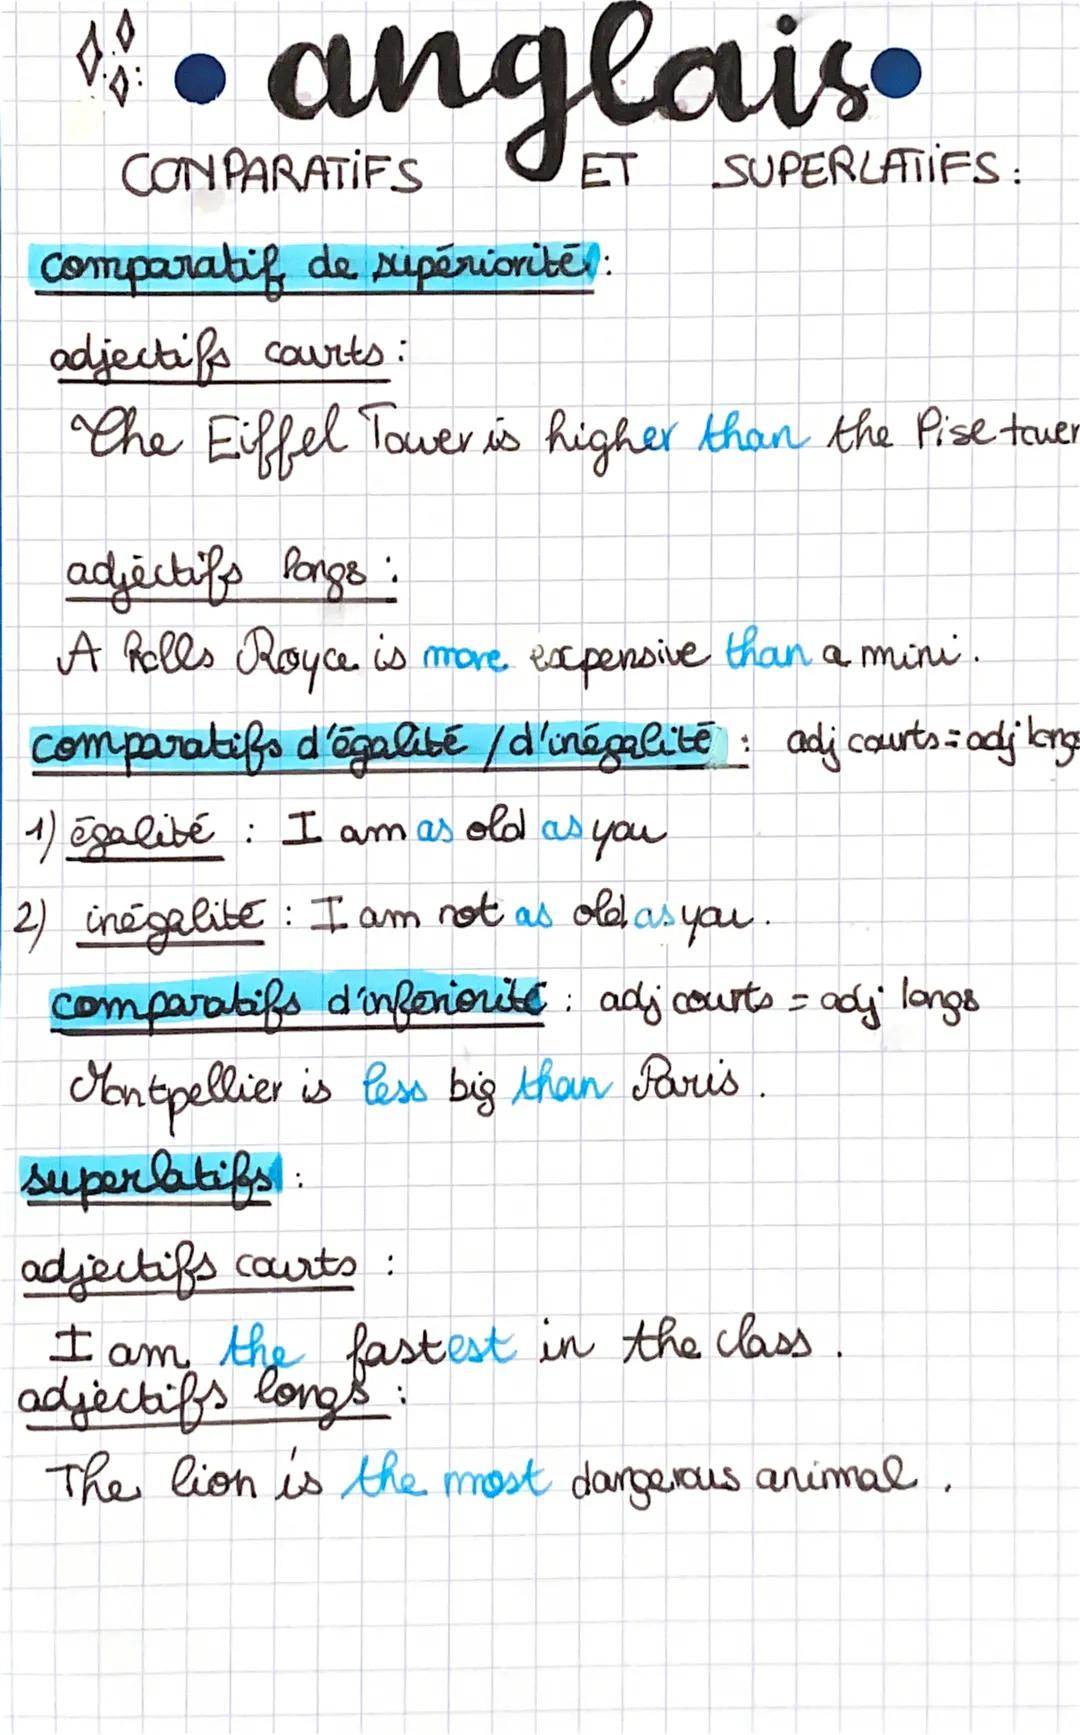 anglais
COMPARATiFS ET SUPERLATiiFS :
comparatif de supériorité :
adjectifs courts :
The Eiffel Tower is higher than the Pise tower
adjéctifs longs :
A Rolls Royce is more expensive than a mini.
comparatifs d'égalité / d'inégalité : adj courts = adj longs
1) égalité : I am as old as you
2) inégalité : I am not as old as you.
comparatifs d'inferiorité : adj courts = adj longs
Montpellier is less big than Paris.
superlatifs :
adjectifs courts :
I am the fastest in the class.
adjectifs longs :
The lion is the most dangerous animal.